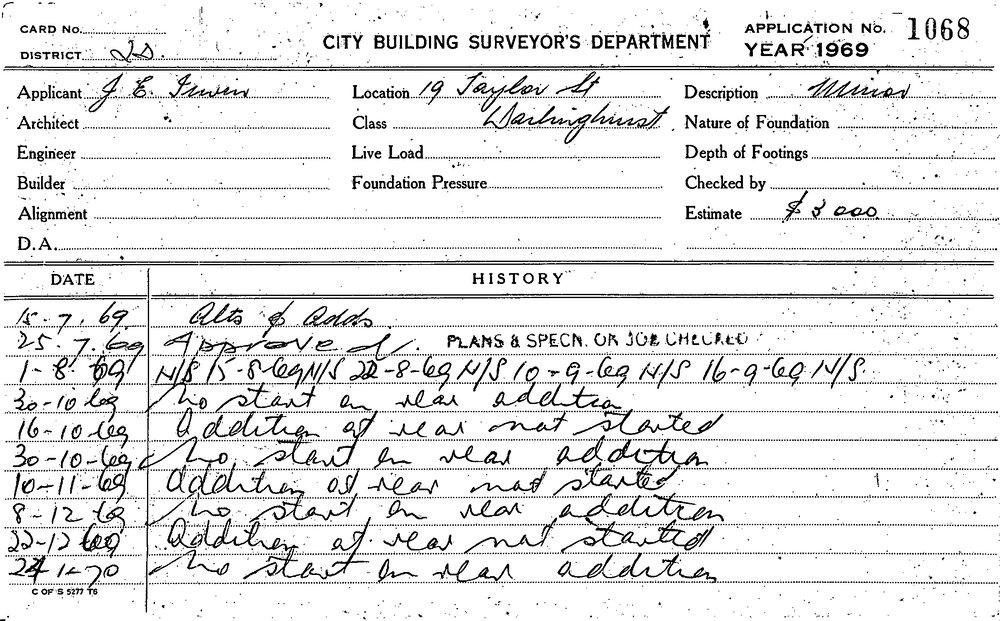 CARD No.
APPLICATION No. 1068
DISTRICT 2D.
CITY BUILDING SURVEYOR'S DEPARTMENT
YEAR 1969
Applicant J E Irwin
Location 19 Taylor St
Description Minor
Architect
Class Darlinghurst
Nature of Foundation
Engineer
Live Load
Depth of Footings
Builder
Foundation Pressure
Checked by
Alignment
Estimate $3000
D.A.
DATE HISTORY
15.7.69 Alts & Adds
25.7.69 Approved. PLANS & SPECN. ON JOB CHECKED
1-8-69 N/S 15-8-69 N/S 22-8-69 N/S 10-9-69 N/S 16-9-69 N/S.
30-10-69 No start on rear addition
16-10-69 Addition at rear not started
30-10-69 No start on rear addition
10-11-69 Addition at rear not started
8-12-69 No start on rear addition
22-12-69 Addition at rear not started
1-70 No start on rear addition
C OF S 5277 T6